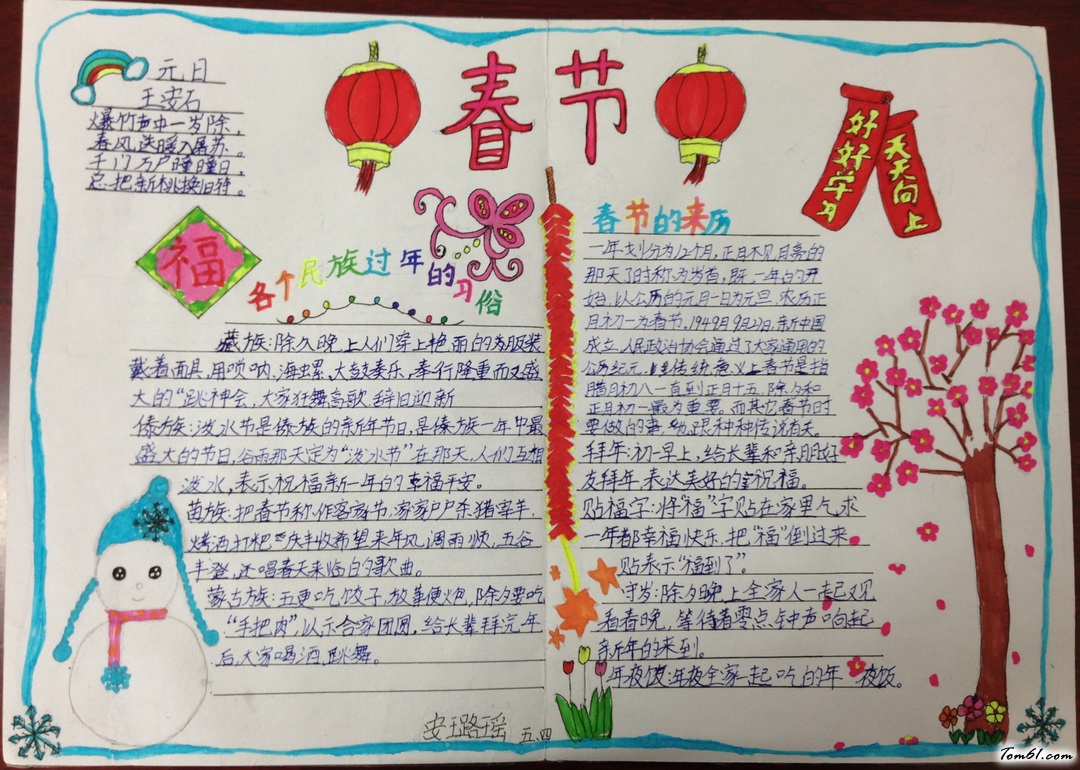 春节
元日
王安石
爆竹声中一岁除，
春风送暖入屠苏。
千门万户曈曈日，
总把新桃换旧符。
福
各个民族过年的习俗
藏族：除夕晚上人们穿上艳丽的服装
戴着面具，用唢呐、海螺、大鼓奏乐，举行隆重而又盛
大的“跳神会，大家狂舞高歌 辞旧迎新
傣族：泼水节是傣族的新年节日，是傣族一年中最
盛大的节日，谷雨那天定为“泼水节”在那天，人们互相
泼水，表示祝福新一年的幸福平安。
苗族：把春节称作客家节，家家户户杀猪宰羊，
烤酒打粑 庆丰收希望来年风调雨顺，五谷
丰登，还唱春天来临白的歌曲。
蒙古族：五更吃饺子、放草便火包，除夕要吃
“手把肉”，以示合家团圆，给长辈拜完年
后，大家喝酒、跳舞。
好好学习
天天向上
春节的来历
一年划分为12个月，正月不见月亮的
那天子时称为岁首，既一年的开
始，以公历的元月一日为元旦，农历正
月初一为春节。1949月9月27日，新中国
成立，人民政治协会通过了大家通用的
公历纪元，传统意义上春节是指
腊月初八一直到正月十五，除夕和
正月初一最为重要。而其它春节时
要做的事，跟种种传说有关。
拜年：初一早上，给长辈和亲朋好
友拜年，表达美好的祝福。
贴福字：将“福”字贴在家里气求
一年都幸福快乐，把“福”倒过来
贴表示“福到了”。
守岁：除夕晚上全家人一起观
看春晚，等待着零点钟声响起
新年的来到。
年夜饭：年夜全家一起吃的年夜饭。
安珏路瑶 五.四
Tom61.com